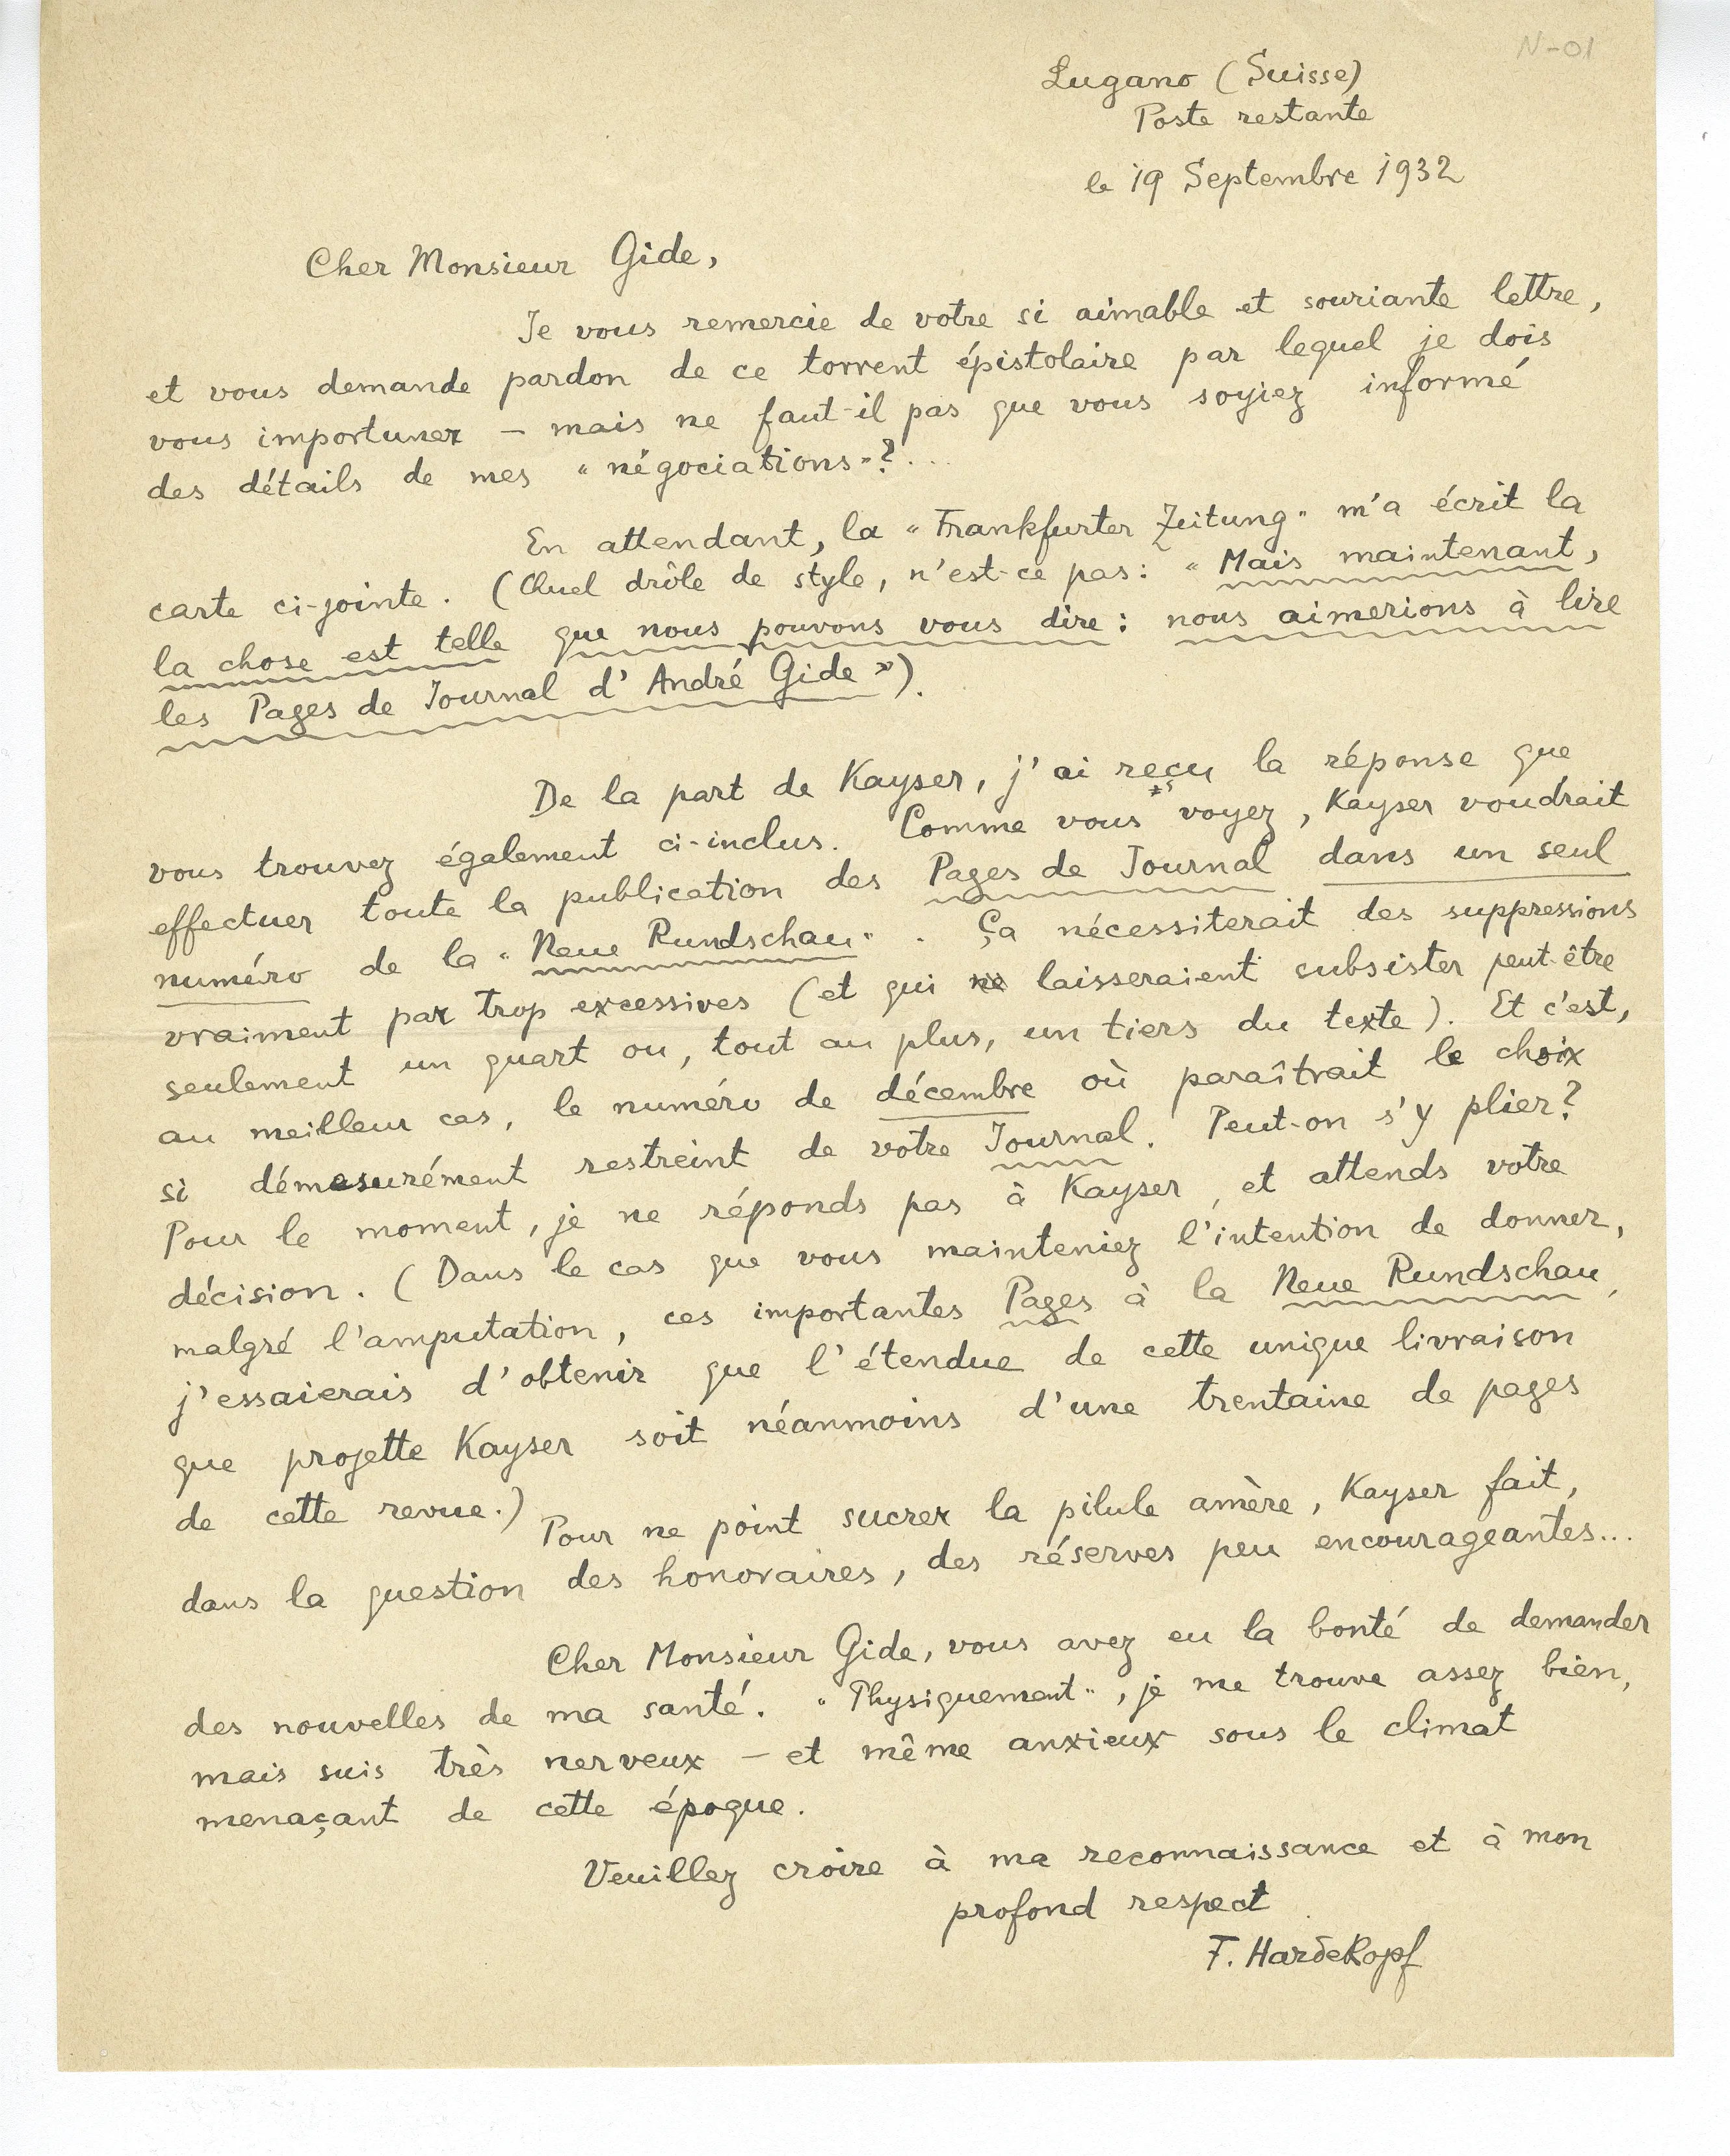 N-01
Lugano (Suisse)
Poste restante
le 19 Septembre 1932
Cher Monsieur Gide,
Je vous remercie de votre si aimable et souriante lettre,
et vous demande pardon de ce torrent épistolaire par lequel je dois
vous importuner – mais ne faut-il pas que vous soyiez informé
des détails de mes "négociations"?...
En attendant, la "Frankfurter Zeitung" m'a écrit la
carte ci-jointe. (Quel drôle de style, n'est-ce pas: "Mais maintenant,
la chose est telle que nous pouvons vous dire: nous aimerions à lire
les Pages de Journal d'André Gide").
De la part de Kayser, j'ai reçu la réponse que
vous trouvez également ci-inclus. Comme vous voyez, Kayser voudrait
effectuer toute la publication des Pages de Journal dans un seul
numéro de la "Neue Rundschau". Ça nécessiterait des suppressions
vraiment par trop excessives (et qui ne laisseraient subsister peut-être
seulement un quart ou, tout au plus, un tiers du texte). Et c'est,
au meilleur cas, le numéro de décembre où paraîtrait le choix
si démesurément restreint de votre Journal. Peut-on s'y plier?
Pour le moment, je ne réponds pas à Kayser, et attends votre
décision. (Dans le cas que vous mainteniez l'intention de donner,
malgré l'amputation, ces importantes Pages à la Neue Rundschau,
j'essaierais d'obtenir que l'étendue de cette unique livraison
que projette Kayser soit néanmoins d'une trentaine de pages
de cette revue.)
Pour ne point sucrer la pilule amère, Kayser fait,
dans la question des honoraires, des réserves peu encourageantes...
Cher Monsieur Gide, vous avez eu la bonté de demander
des nouvelles de ma santé. "Physiquement", je me trouve assez bien,
mais suis très nerveux – et même anxieux sous le climat
menaçant de cette époque.
Veuillez croire à ma reconnaissance et à mon
profond respect
F. Hardekopf